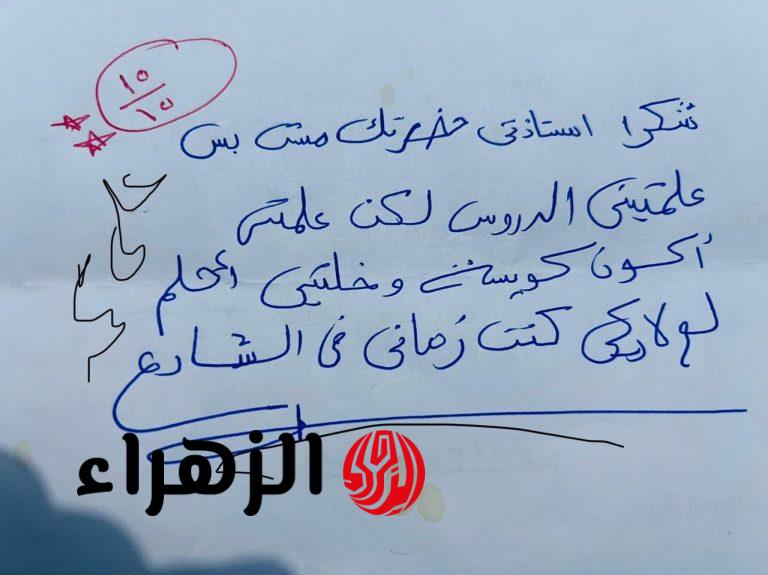 ١٥
١٥
شكرا استاذتى حضرتك مش بس
علمتينى الدروس لكن علمتى
أكون كويسة وخلتينى احلم
لولاكى كنت زمانى فى الشارع
الزهراء